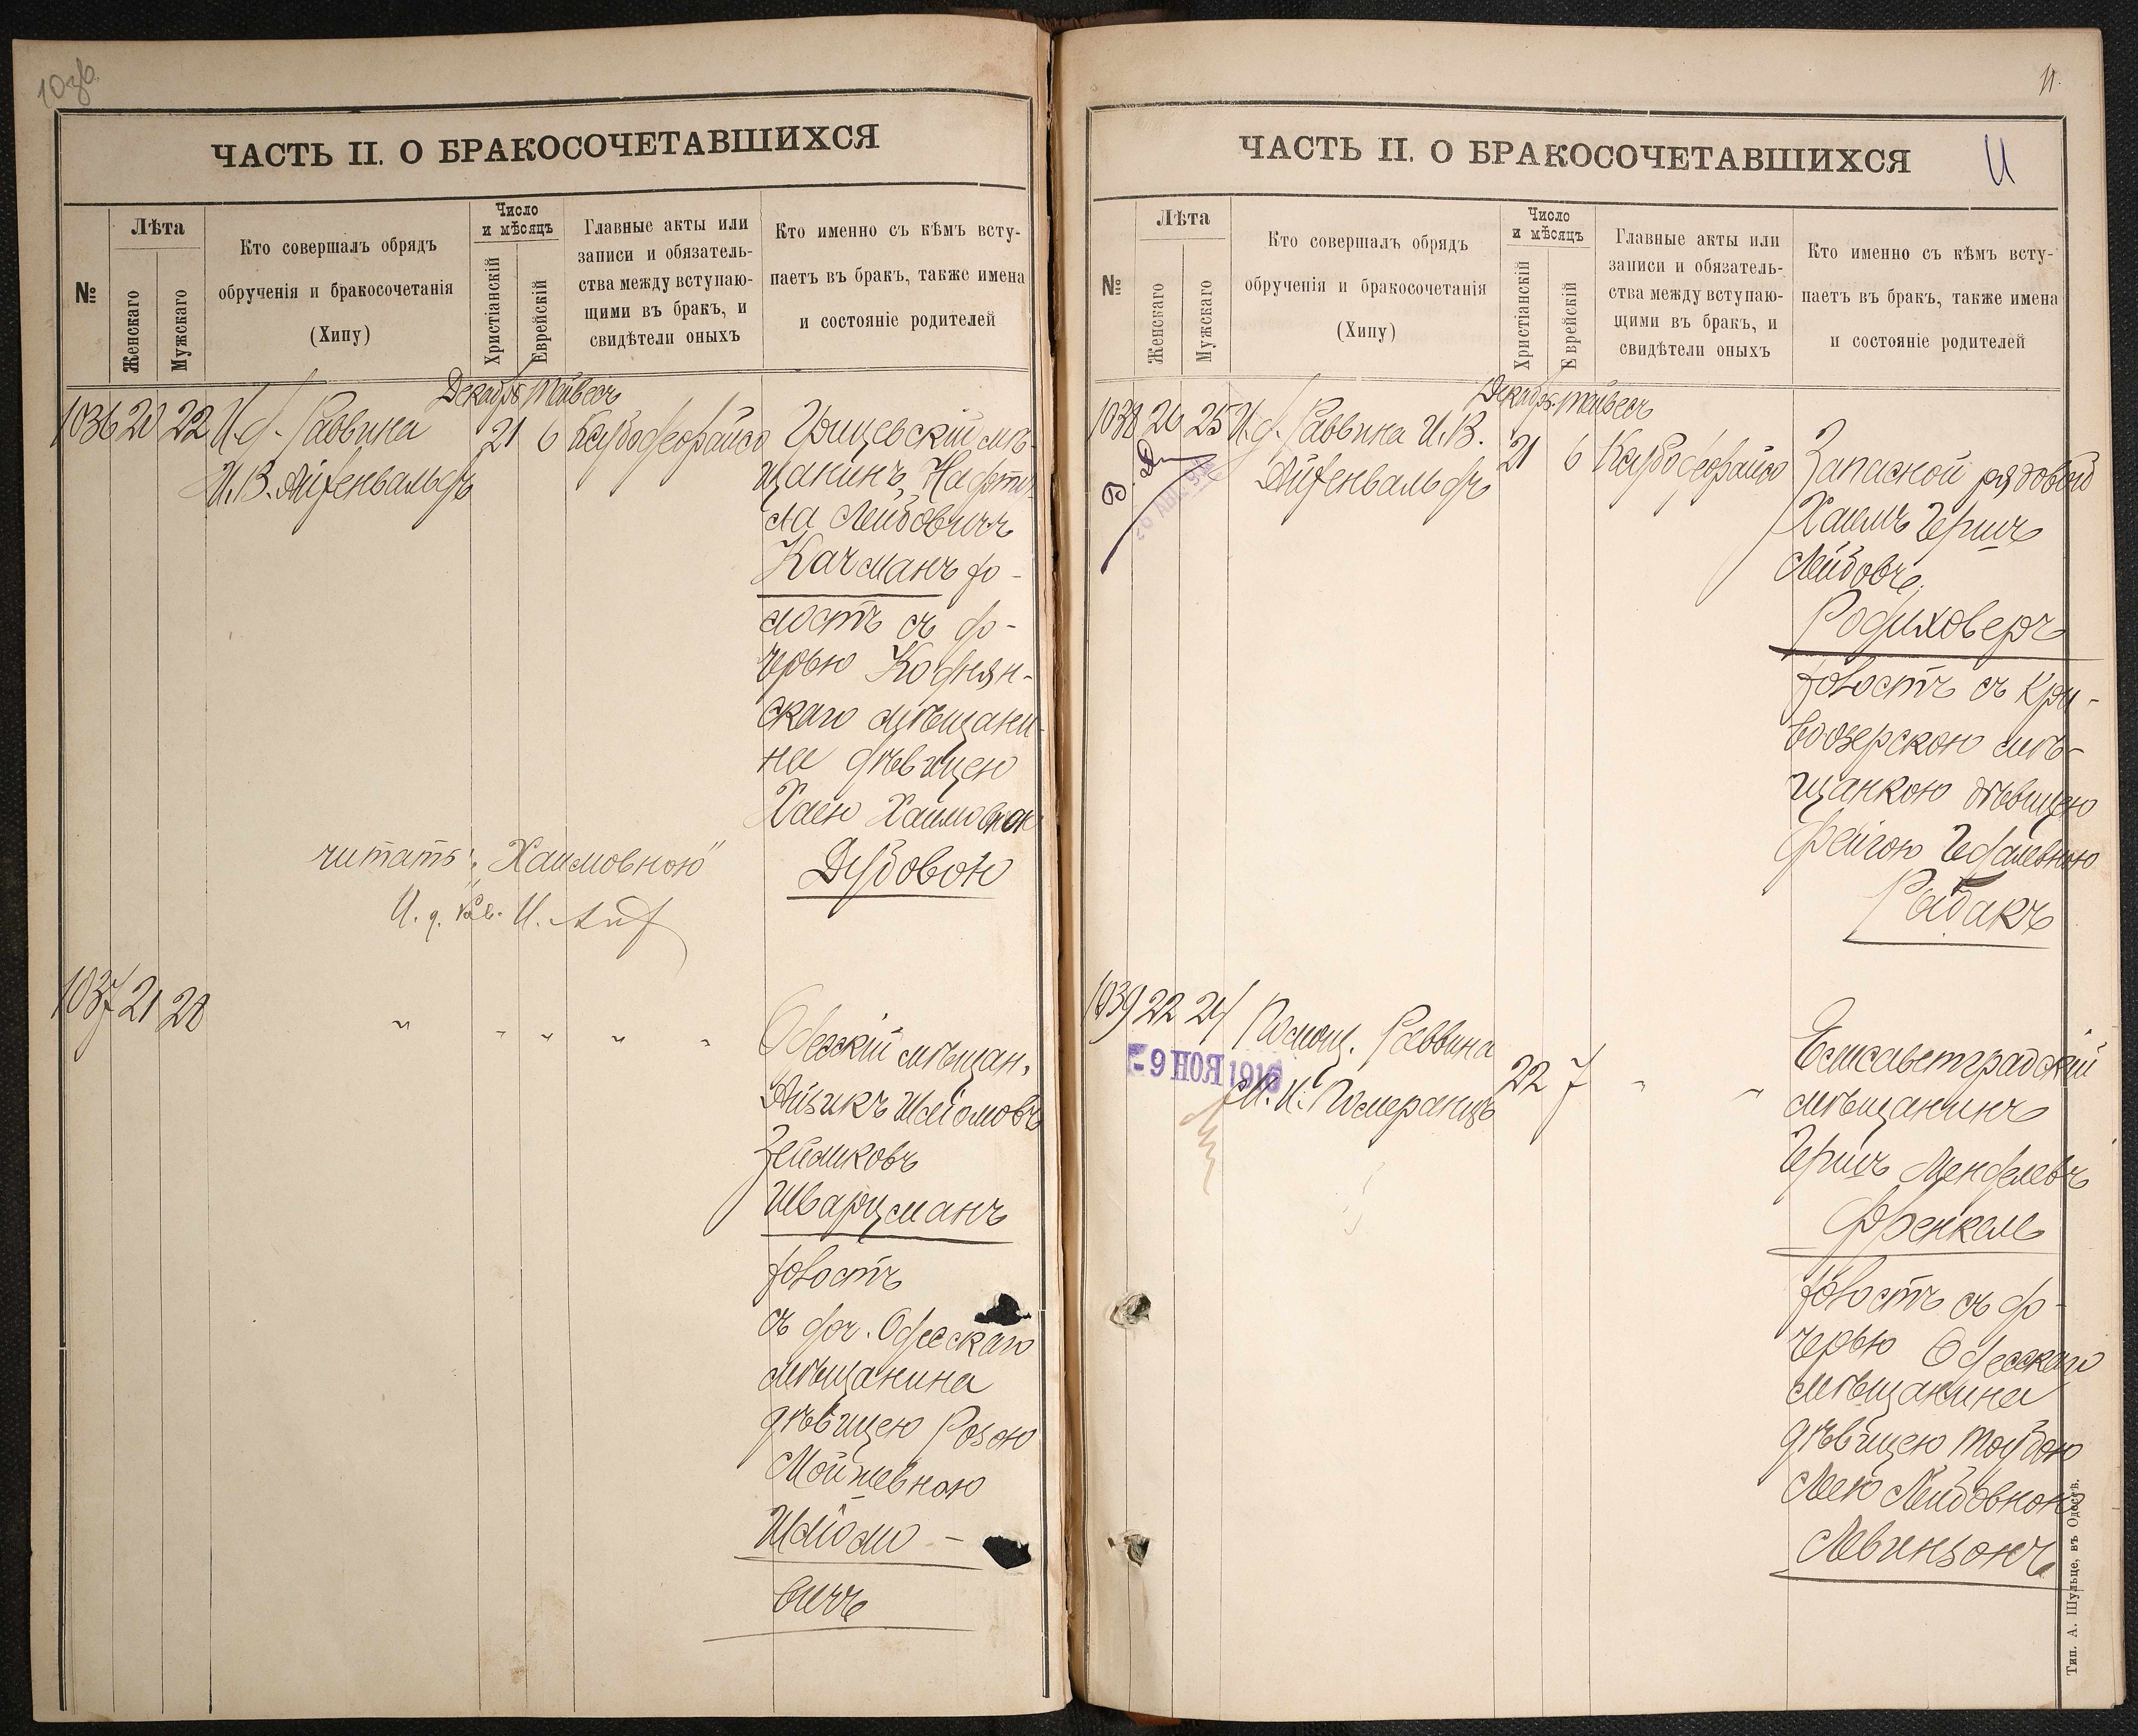 ЧАСТЬ II. О БРАКОСОЧЕТАВШИХСЯ
№
Лѣта
Женскаго
Мужскаго
Кто совершалъ обрядъ
обрученія и бракосочетанія
(Хипу)
Число
и мѣсяцъ
Христіанскій
Еврейскій
Главные акты или
записи и обязатель-
ства между вступаю-
щими въ бракъ, и
свидѣтели оныхъ
Кто именно съ кѣмъ всту-
паетъ въ бракъ, также имена
и состояніе родителей
Декабрь Тейвесъ
1036 20 22 И. д. Раввина 21 6
И. В. Айзенвальдъ
Грицевскій мѣ-
щанинъ, Нафту-
ла Лейбовичъ
Качманъ хо-
лостъ съ до-
черью Коднян-
скаго мѣщани-
на дѣвицею
Хаею Хаимовною
Дубовою
читать: „Хаимовною"
И. д. Рав. И. Айз
1037 21 28 " " " " "
Одесскій мѣщан.
Айзикъ Шліомовъ
Зейликовъ
Шварцманъ
холостъ
съ доч. Одесскаго
мѣщанина
дѣвицею Розою
Мойшевною
Шліомо-
вичъ
11
ЧАСТЬ II. О БРАКОСОЧЕТАВШИХСЯ
11
№
Лѣта
Женскаго
Мужскаго
Кто совершалъ обрядъ
обрученія и бракосочетанія
(Хипу)
Число
и мѣсяцъ
Христіанскій
Еврейскій
Главные акты или
записи и обязатель-
ства между вступаю-
щими въ бракъ, и
свидѣтели оныхъ
Кто именно съ кѣмъ всту-
паетъ въ бракъ, также имена
и состояніе родителей
Декабрь Тейвесъ
1038 20 25 И. д. Раввина И. В. 21 6
Айзенвальдъ
Запасной рядовой
Хаимъ Гершъ
Лейбовъ
Родиховеръ
холостъ съ Кри-
воозерскою мѣ-
щанкою дѣвицею
Фейгою Гедалевною
Рыбакъ
1039 22 24 Помощ. Раввина 22 7 " "
- 9 НОЯ 1916
М. И. Померанцъ
Елисаветградскій
мѣщанинъ
Гершъ Менделевъ
Френкель
холостъ съ до-
черью Одесскаго
мѣщанина
дѣвицею Таубою
Леею Лейбовною
Левинзонъ
Тип. А. Шульце, въ Одессѣ.